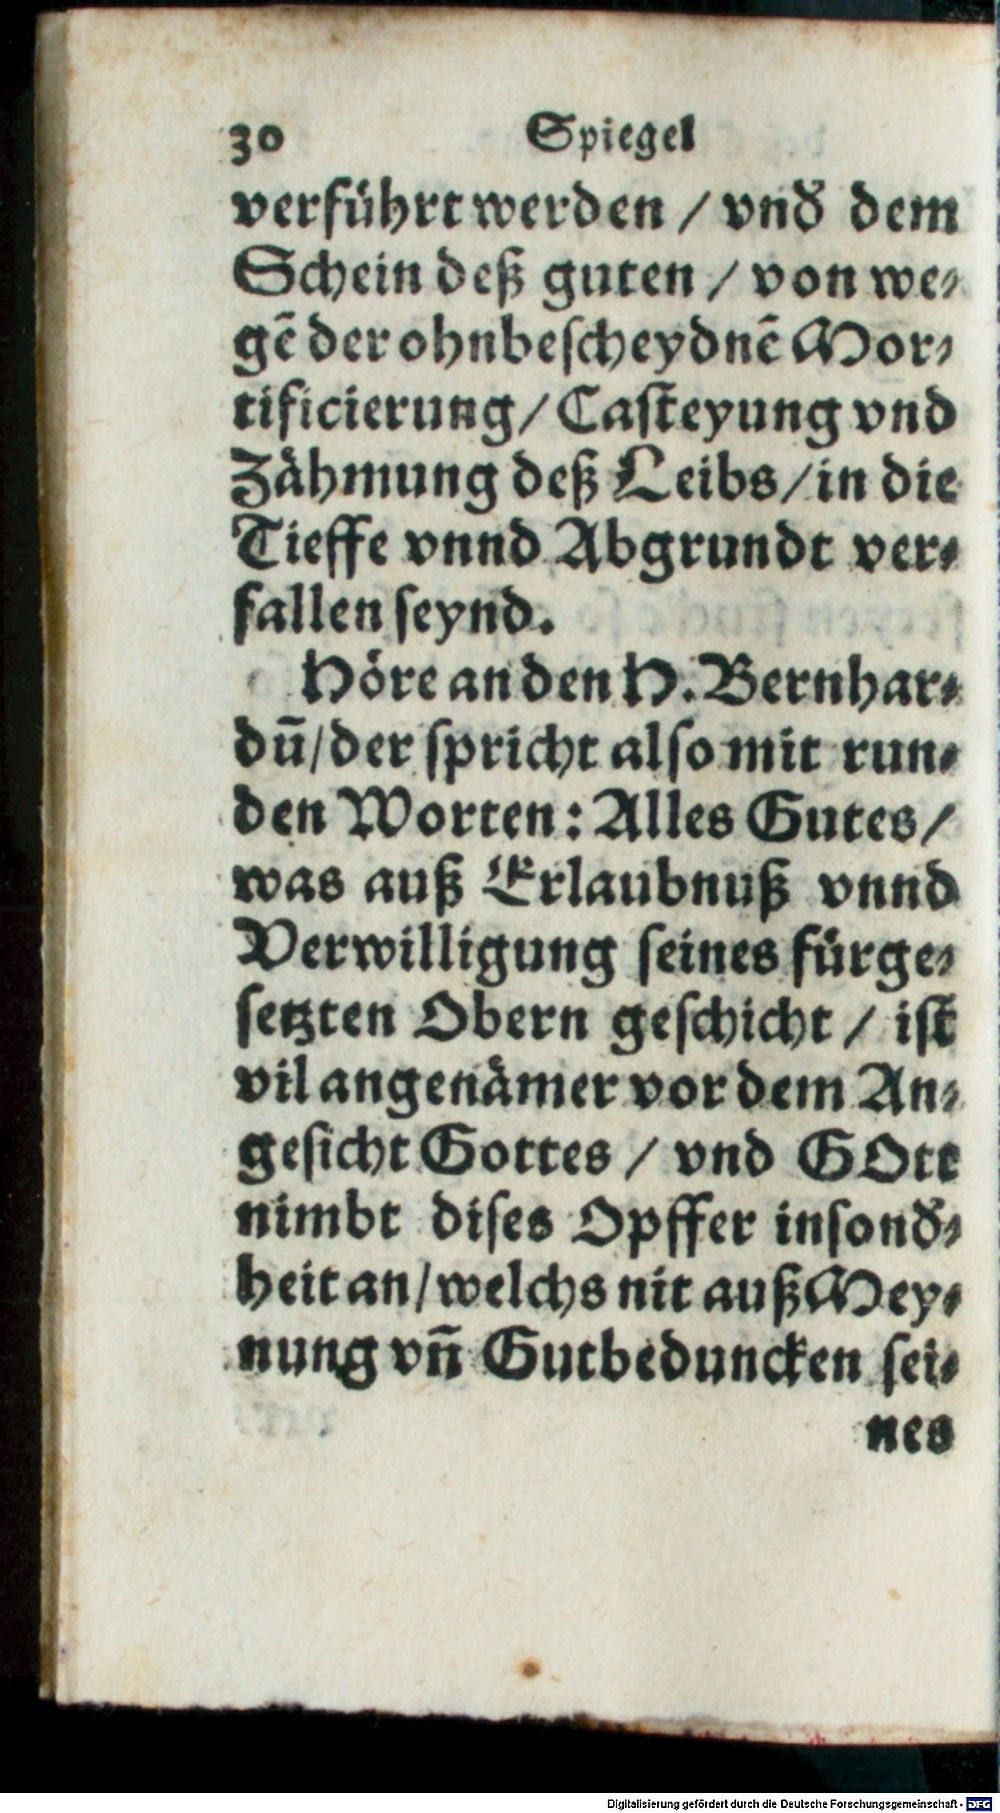 30 Spiegel
verführt werden / vnd̕ dem
Schein deß guten / von we⸗
gē der ohnbescheydnē Mor⸗
tificierung / Casteyung vnd
Zämung deß Leibs / in die
Tieffe vnnd Abgrundt ver⸗
fallen seynd.
Höre an den H. Bernhar⸗
dū / der spricht also mit run⸗
den Worten: Alles Gutes /
was auß Erlaubnuß vnnd
Verwilligung seines fürge⸗
setzten Obern geschicht / ist
vil angenämer vor dem An⸗
gesicht Gottes / vnd GOtt
nimbt dises Opffer insond̕⸗
heit an / welchs nit auß Mey⸗
nung vñ Gutbeduncken sei⸗
nes
Digitalisierung gefördert durch die Deutsche Forschungsgemeinschaft - DFG